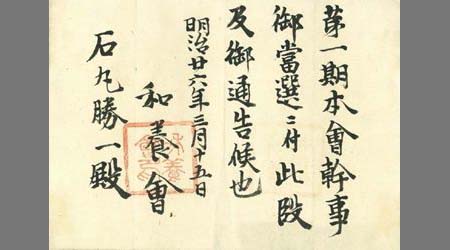 第一期本會幹事
御當選ニ付此段
及御通告候也
明治廿六年三月十五日
和養會
石丸勝一殿